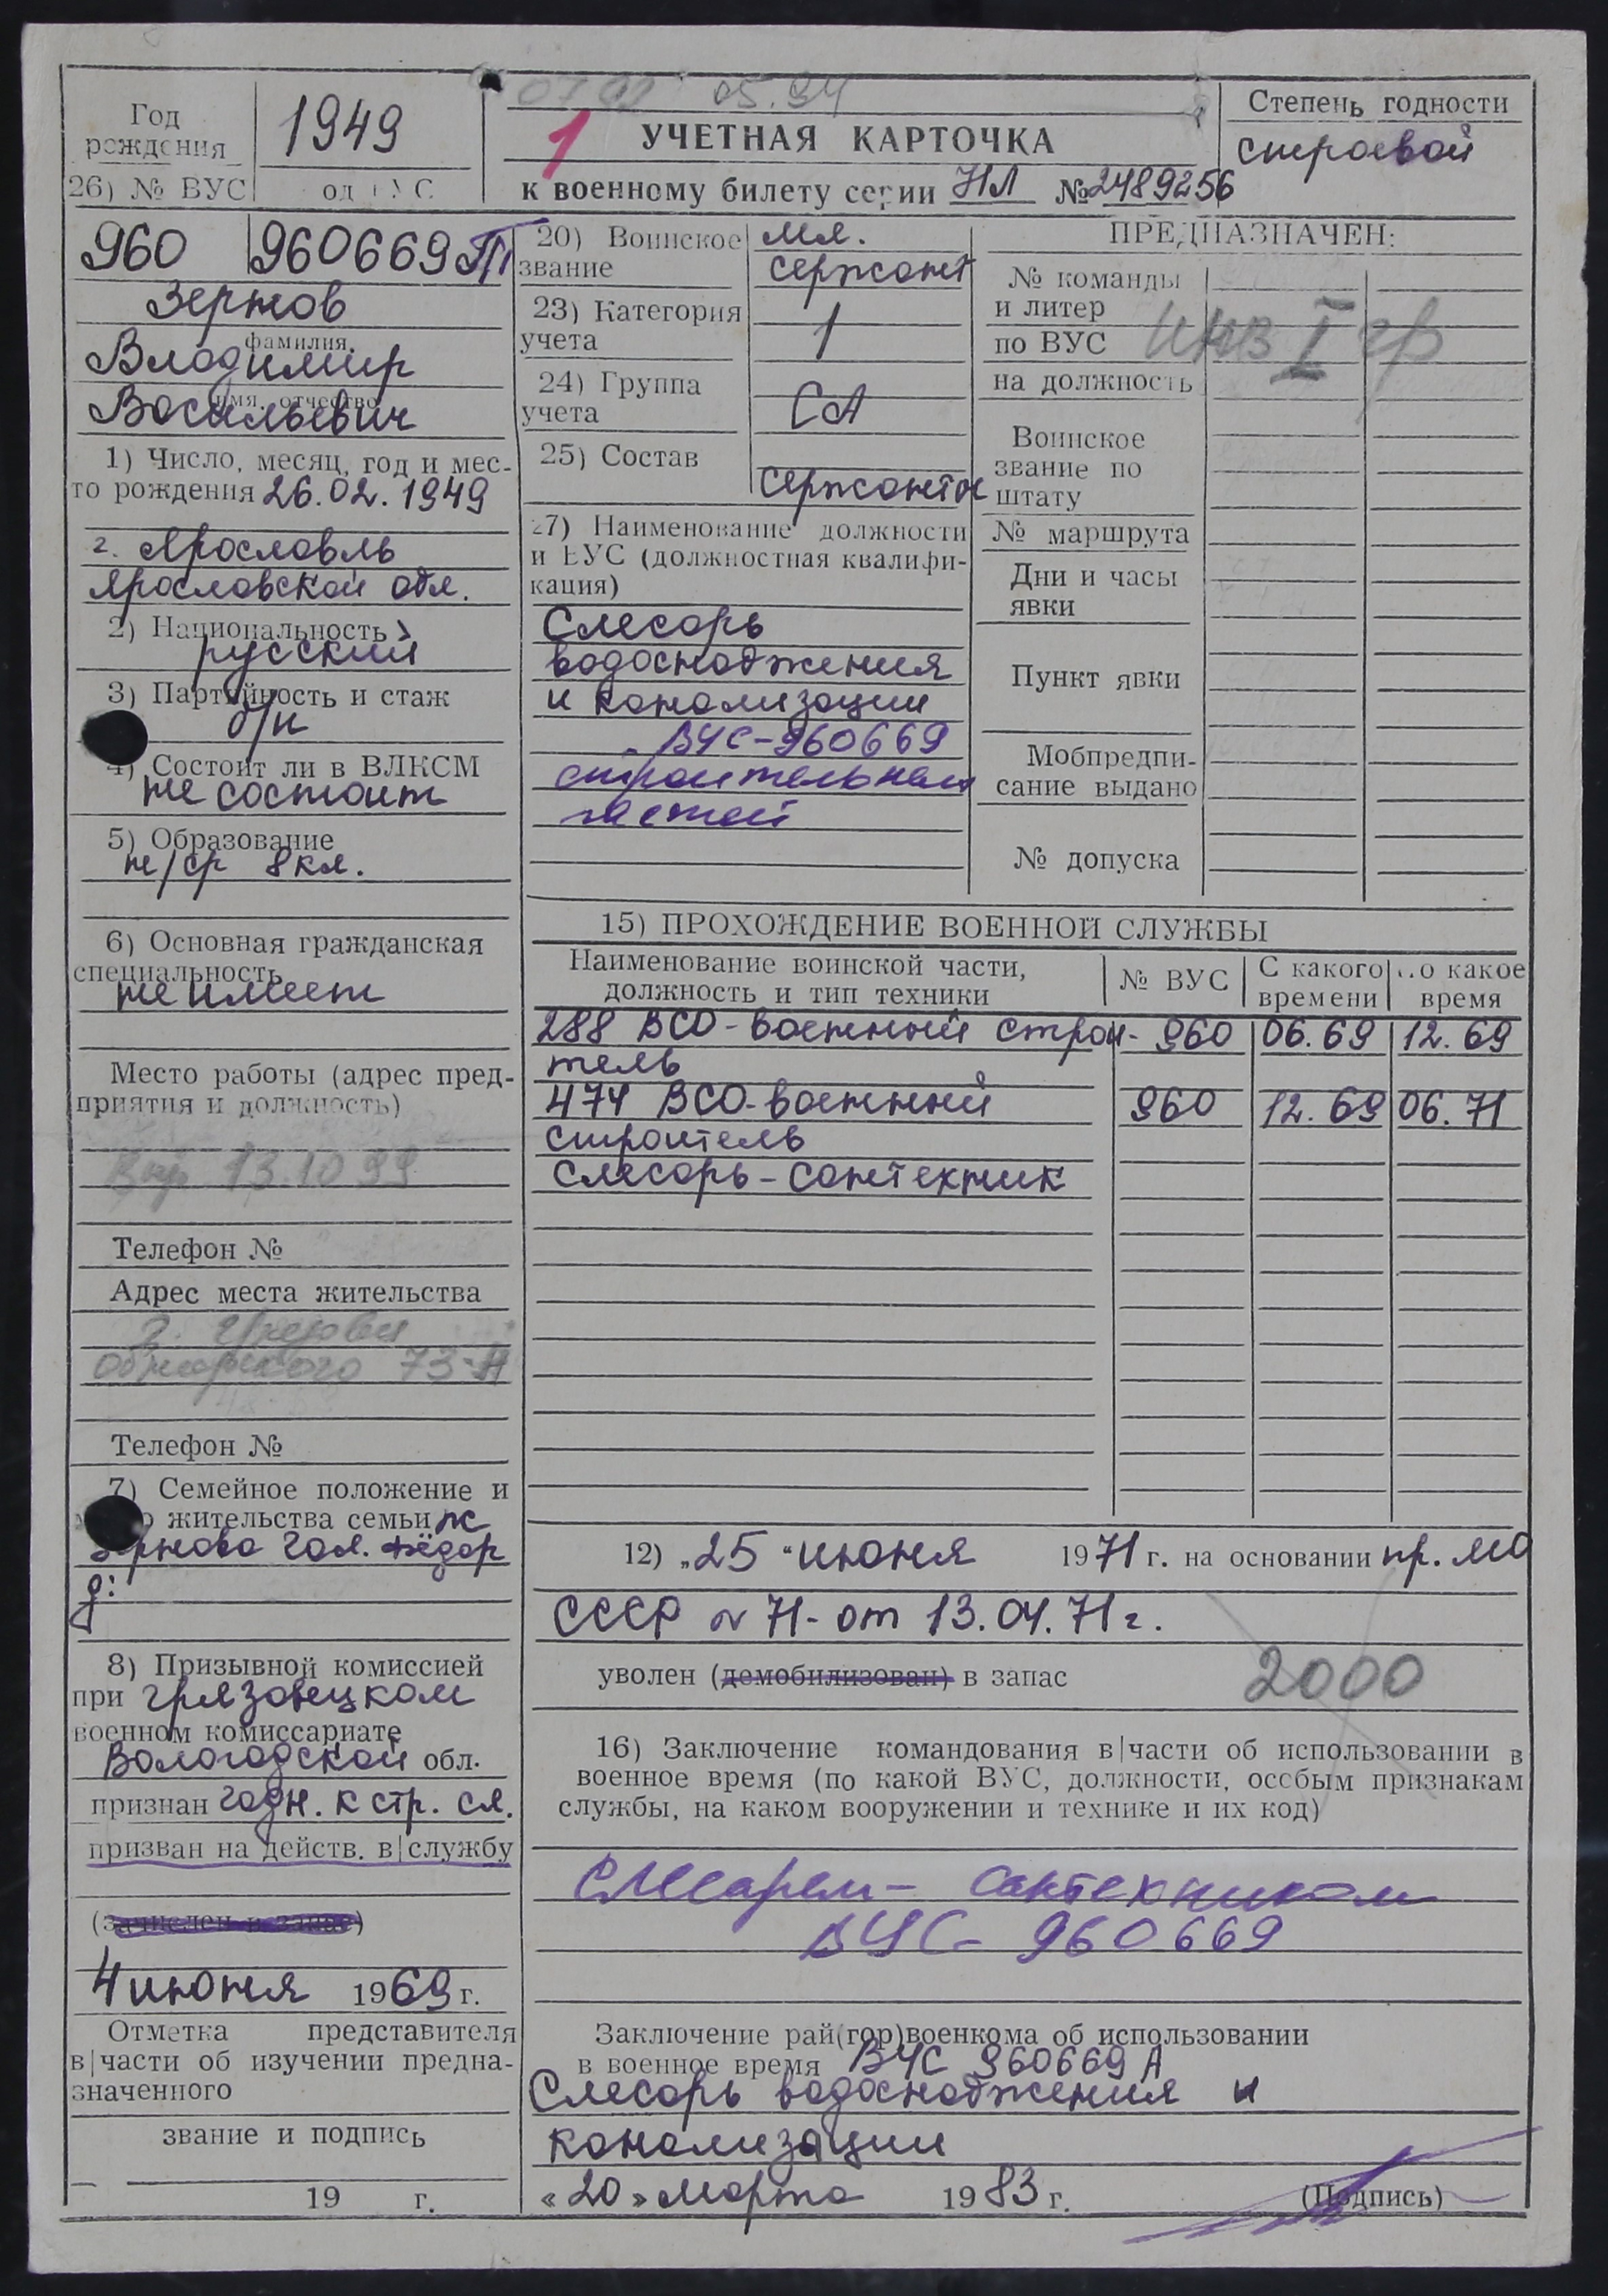 07 92 05.94
Год рождения
1949
1
УЧЕТНАЯ КАРТОЧКА
к военному билету серии НЛ № 2489256
Степень годности
строевой
26) № ВУС
од УС
960
960669
Зернов
фамилия
Владимир
имя, отчество
Васильевич
1) Число, месяц, год и мес-
то рождения 26.02.1949
г. Ярославль
Ярославской обл.
2) Национальность
русский
3) Партийность и стаж
б/п
4) Состоит ли в ВЛКСМ
не состоит
5) Образование
н/ср 8 кл.
6) Основная гражданская
специальность
не имеет
Место работы (адрес пред-
приятия и должность)
13.10 99
Телефон №
Адрес места жительства
г. Грязовец
Обнорского 73-
Телефон №
7) Семейное положение и
жительства семьи ж
Зернова Гал. Фёдор
д:
8) Призывной комиссией
при Грязовецком
военном комиссариате
Вологодской обл.
признан годн. к стр. сл.
призван на действ. в|службу
(зачислен в запас)
4 июня 1969 г.
Отметка представителя
в|части об изучении предна-
значенного
звание и подпись
19 г.
20) Воинское
звание
мл.
сержант
23) Категория
учета
1
24) Группа
учета
СА
25) Состав
сержантов
27) Наименование должности
и ВУС (должностная квалифи-
кация)
Слесарь
водоснабжения
и канализации
ВУС-960669
строительных
частей
ПРЕДНАЗНАЧЕН:
№ команды
и литер
по ВУС
инв I гр
на должность
Воинское
звание по
штату
№ маршрута
Дни и часы
явки
Пункт явки
Мобпредпи-
сание выдано
№ допуска
15) ПРОХОЖДЕНИЕ ВОЕННОЙ СЛУЖБЫ
Наименование воинской части,
должность и тип техники
№ ВУС
С какого
времени
По какое
время
288 ВСО-военный строи- 960 06.69 12.69
тель
474 ВСО-военный 960 12.69 06.71
строитель
Слесарь-сантехник
12) „25“ июня 1971 г. на основании пр. МО
СССР № 71- от 13.04.71 г.
уволен (демобилизован) в запас
2000
16) Заключение командования в|части об использовании в
военное время (по какой ВУС, должности, особым признакам
службы, на каком вооружении и технике и их код)
Слесарем- сантехником
ВУС- 960669
Заключение рай(гор)военкома об использовании
в военное время ВУС 960669 А
Слесарь водоснабжения и
канализации
«20» марта 1983 г. (Подпись)